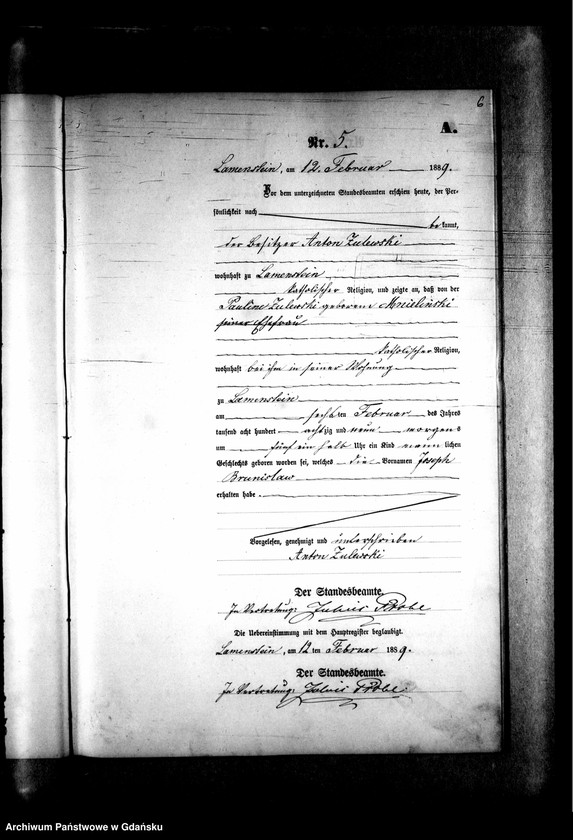 6
A.
Nr. 5.
Lamenstein, am 12. Februar 1889.
Vor dem unterzeichneten Standesbeamten erschien heute, der Per-
sönlichkeit nach
bekannt,
der Besitzer Anton Zulewski
wohnhaft zu Lamenstein
katholischer Religion, und zeigte an, daß von der
Pauline Zulewski geborene
seiner Ehefrau
katholischer Religion,
wohnhaft bei ihm in seiner Wohnung
zu Lamenstein
am sechsten Februar des Jahres
tausend acht hundert achtzig und neun morgens
um fünf ein halb Uhr ein Kind männlichen
Geschlechts geboren worden sei, welches die Vornamen Joseph
Brunislaw
erhalten habe.
Vorgelesen, genehmigt und unterschrieben
Anton Zulewski
Der Standesbeamte.
In Vertretung: Julius
Die Uebereinstimmung mit dem Hauptregister beglaubigt.
Lamenstein, am 12 ten Februar 1889.
Der Standesbeamte.
In Vertretung: Julius
Archiwum Państwowe w Gdańsku